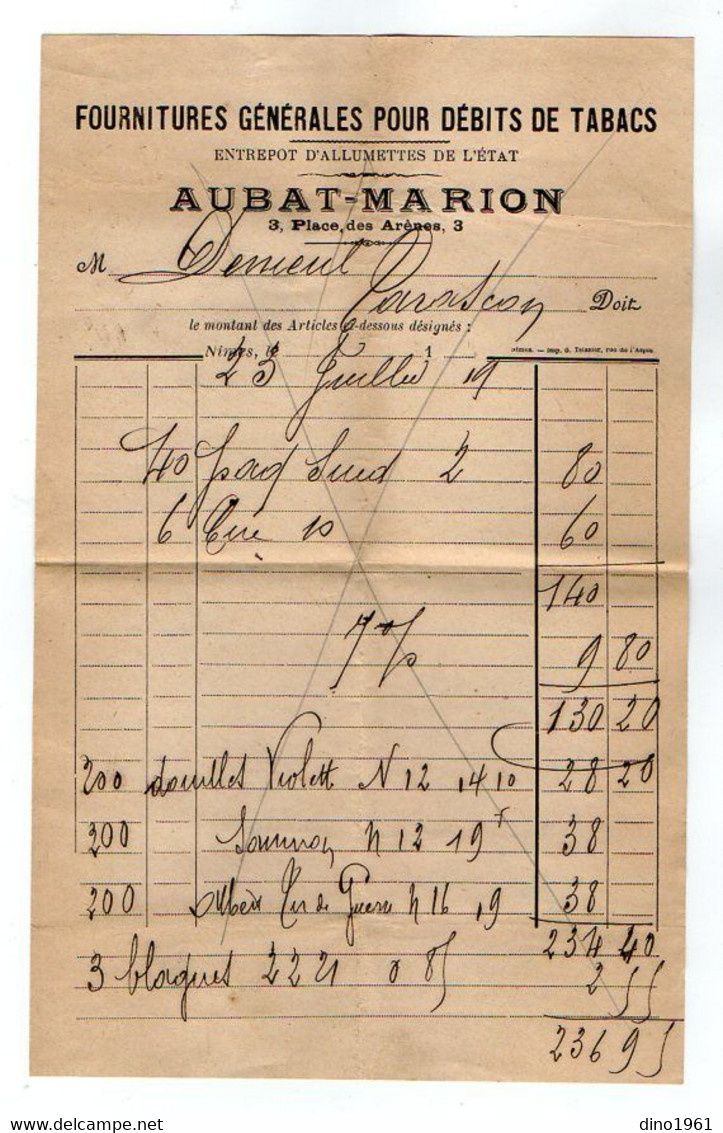 FOURNITURES GÉNÉRALES POUR DÉBITS DE TABACS
ENTREPOT D'ALLUMETTES DE L'ÉTAT
AUBAT-MARION
3, Place des Arènes, 3
M
Tarascon Doit
le montant des Articles ci-dessous désignés :
Nimes, le 1
Nimes. — Imp. G. Teissier, rue de l'Aspic
23 Juillet 19
40 2 80
6 10 60
140
7 % 9 80
130 20
200 douilles Violett N 12 14 10 28 20
200 N 12 19 38
200 de Guerre N 16 19 38
234 40
3 blagues 2221 0 85 2 55
236 95
dino1961